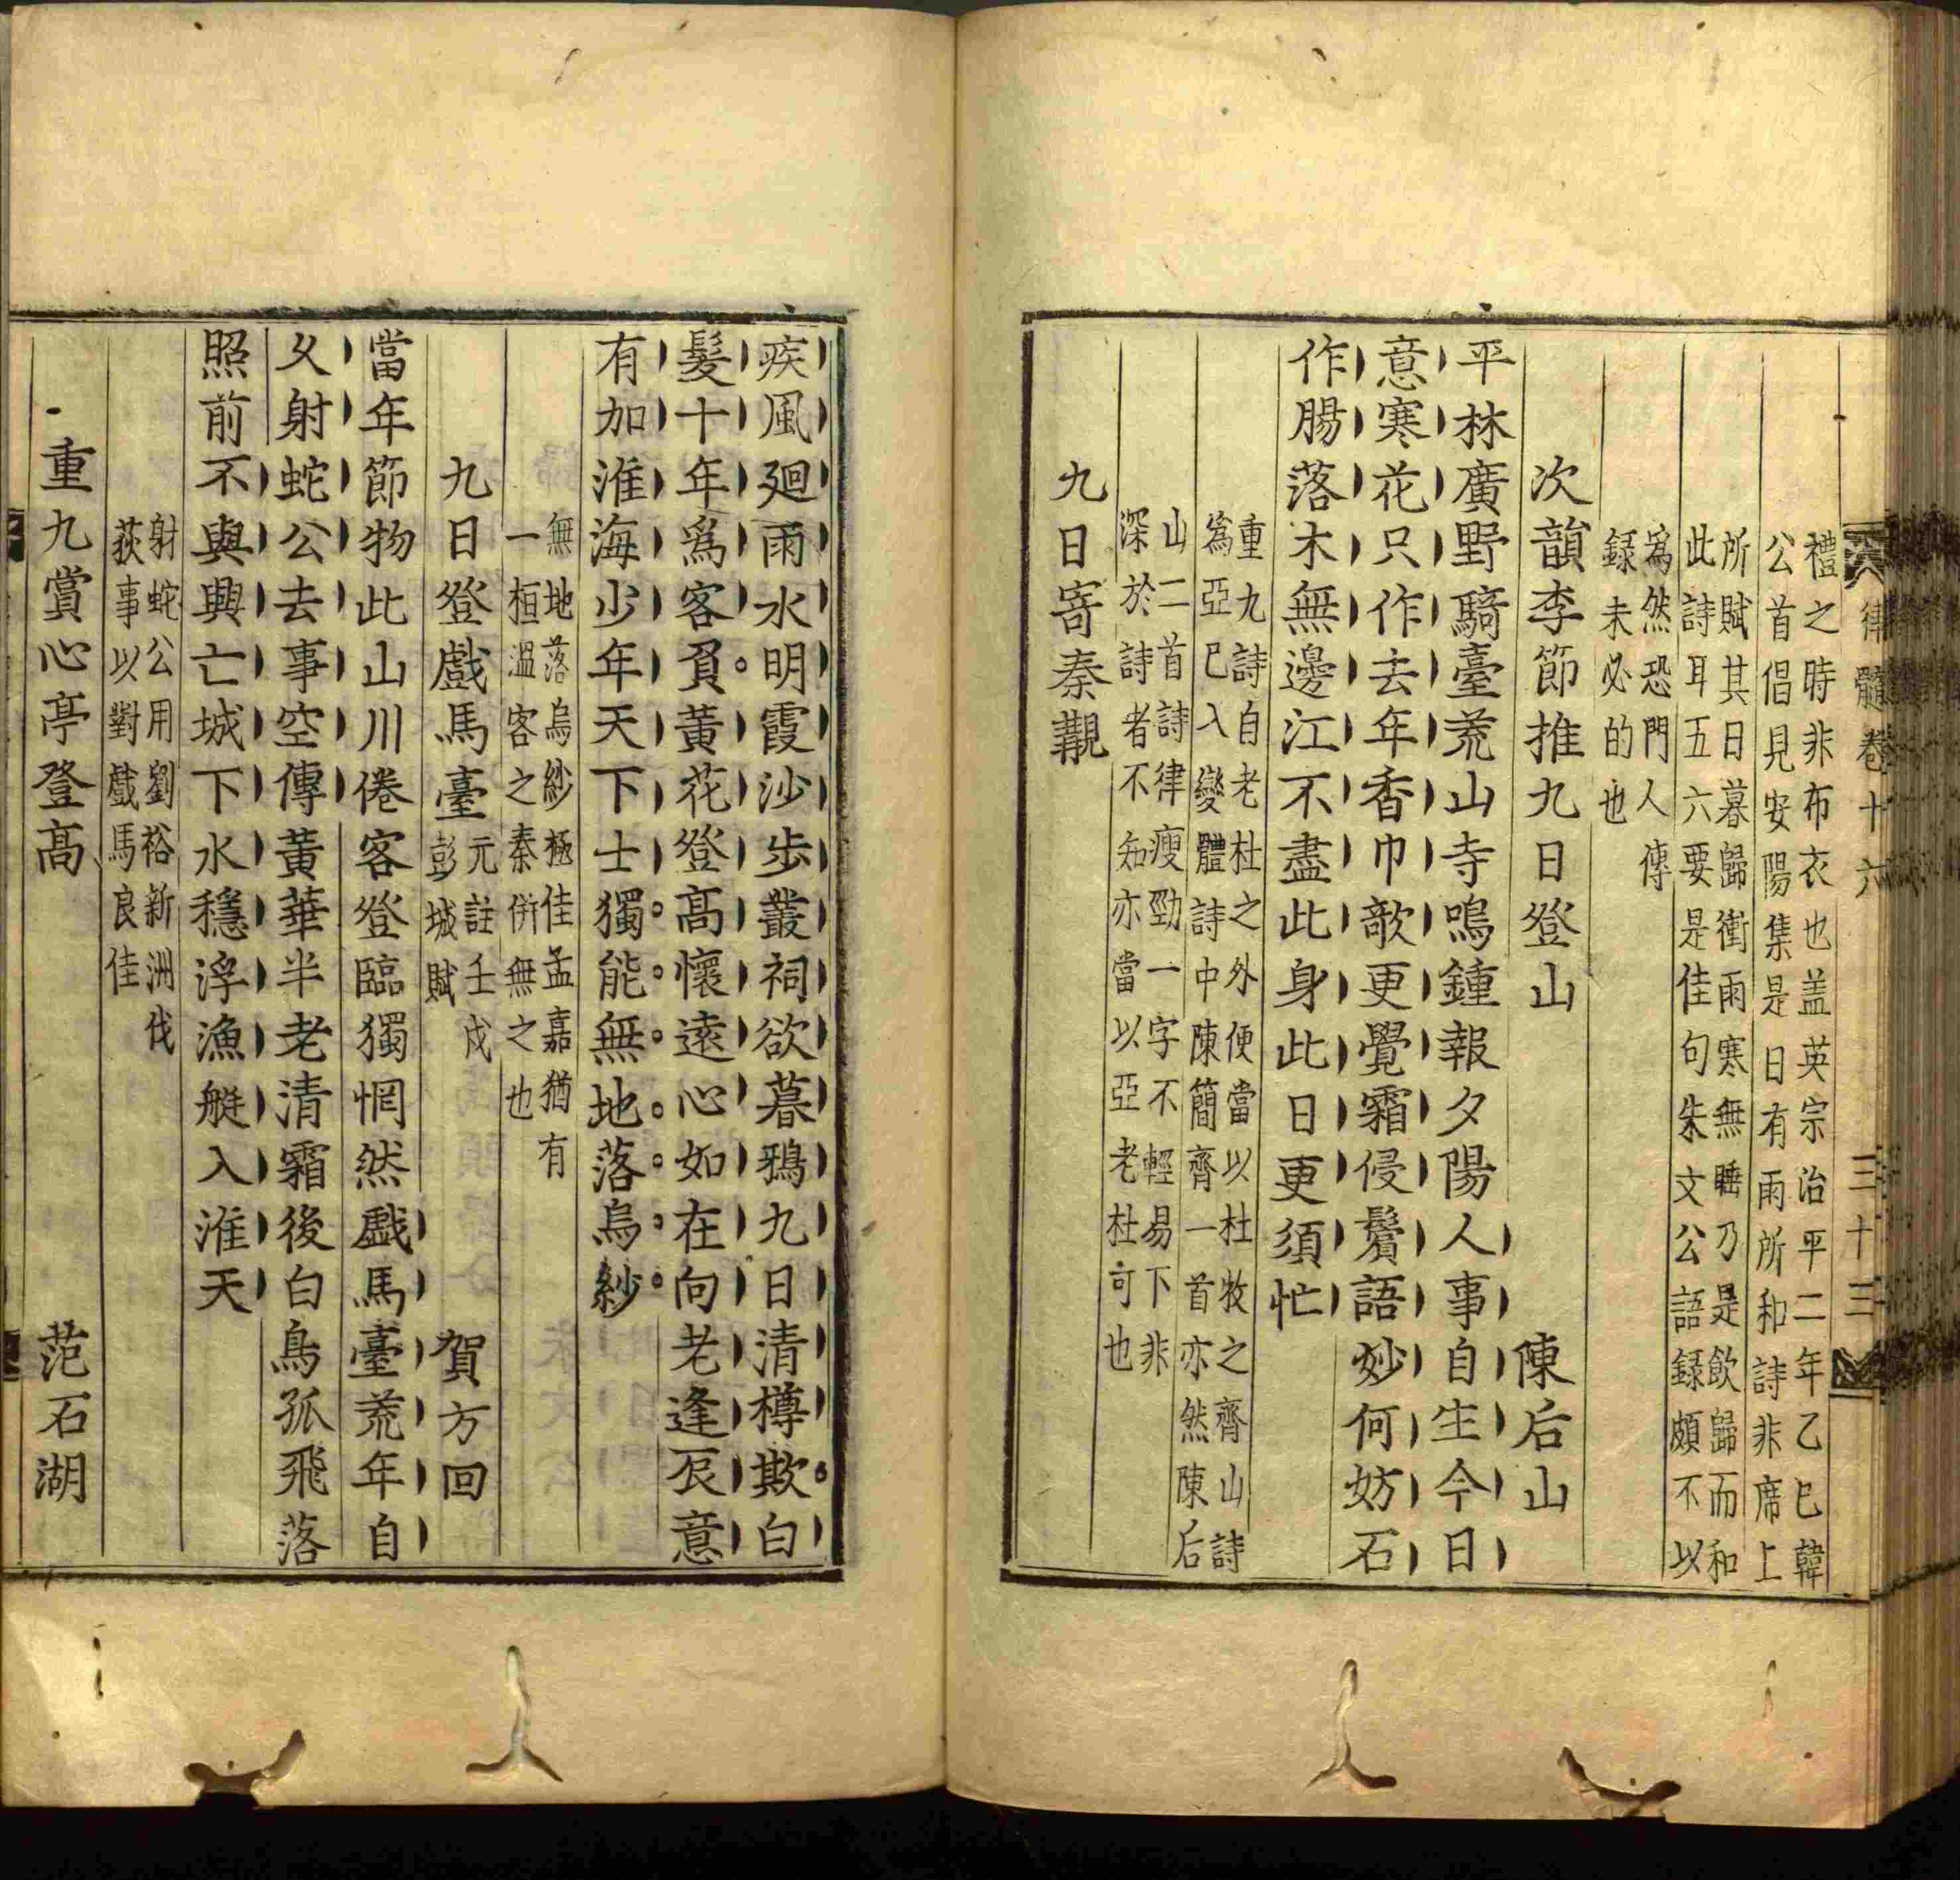 律髓卷十六 三十三
禮之時非布衣也盖英宗治平二年乙巳韓
公首倡見安陽集是日有雨所和詩非席上
所賦其日暮歸衝雨寒無睡乃是飲歸而和
此詩耳五六要是佳句朱文公語録頗不以
爲然恐門人傳
録未必的也
次韻李節推九日登山 陳后山
平林廣野騎臺荒山寺鳴鍾報夕陽人事自生今日
意寒花只作去年香巾欹更覺霜侵鬢語妙何妨石
作腸落木無邊江不盡此身此日更須忙
重九詩自老杜之外便當以杜牧之齊山詩
爲亞已入變體詩中陳簡齊一首亦然陳后
山二首詩律瘦勁一字不輕易下非
深於詩者不知亦當以亞老杜可也
九日寄秦覯
疾風廻雨水明霞沙步叢祠欲暮鴉九日清樽欺白
髮十年爲客負黄花登高懷遠心如在向老逢辰意
有加淮海少年天下士獨能無地落烏紗
無地落烏紗極佳孟嘉猶有
一桓溫客之秦併無之也
九日登戲馬臺 元註壬戌彭城賦 賀方回
當年節物此山川倦客登臨獨惘然戲馬臺荒年自
乆射蛇公去事空傳黃華半老清霜後白鳥孤飛落
照前不與興亡城下水穩浮漁艇入淮天
射蛇公用劉裕新洲伐
荻事以對戲馬良佳
重九賞心亭登高 范石湖